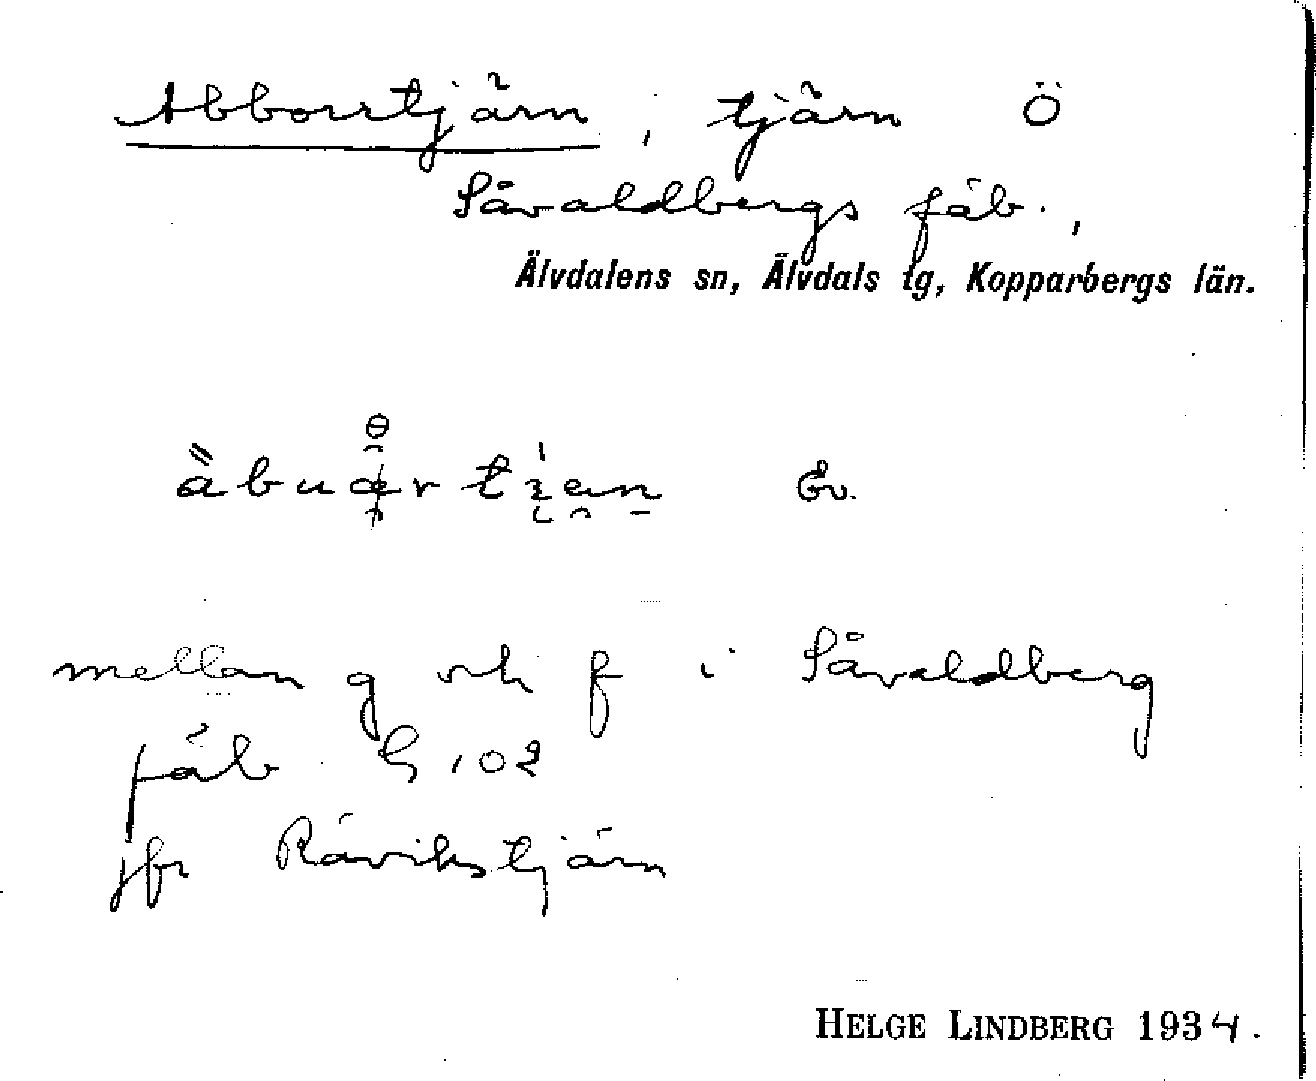 Abborrtjärn, tjärn Ö
Såvaldbergs fäb.,
Älvdalens sn, Älvdals tg, Kopparbergs län.
Ev.
mellan g och f i Såvaldberg
fäb. G 102
jfr Rävikstjärn
HELGE LINDBERG 1934.